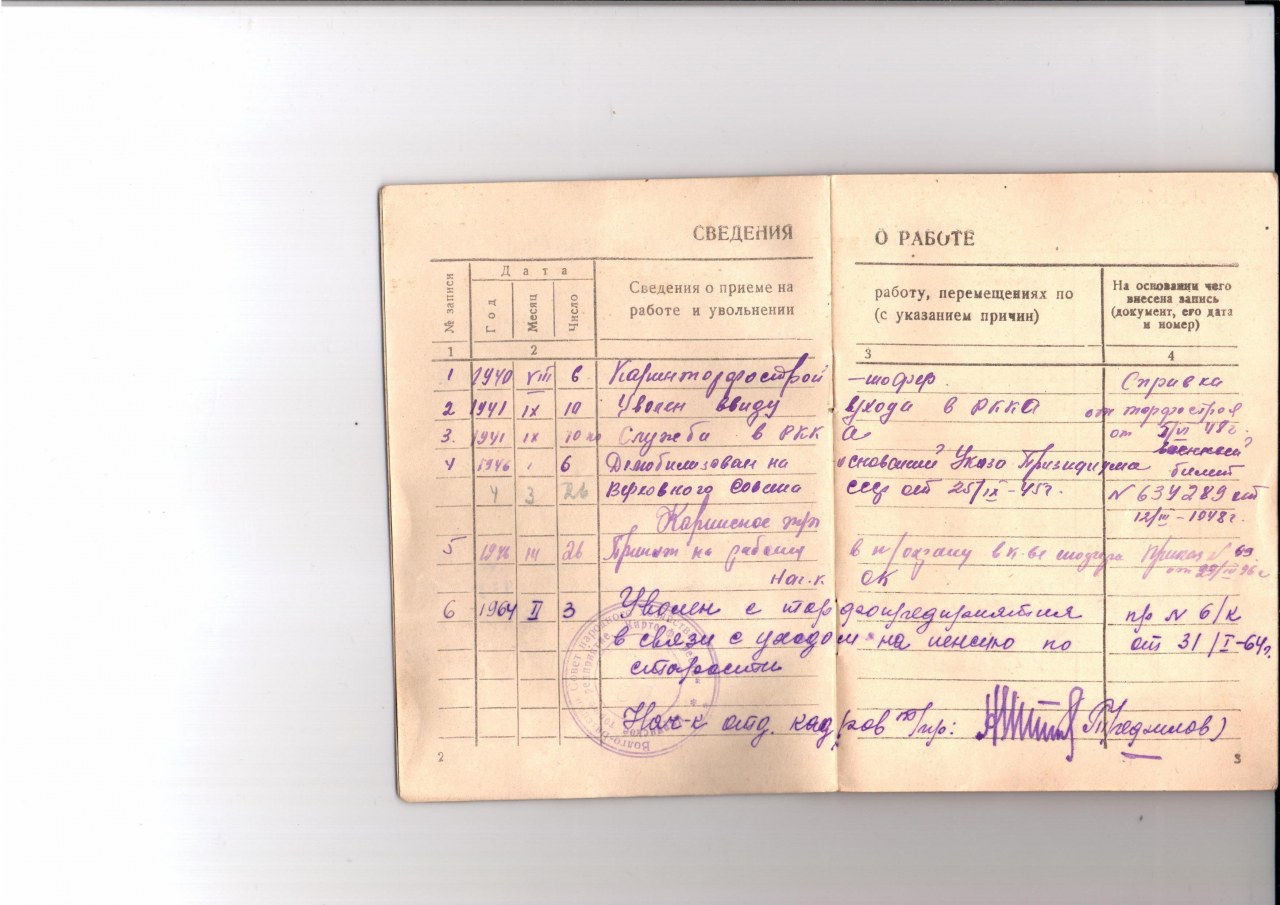 СВЕДЕНИЯ О РАБОТЕ
№ записи
Дата
Год
Месяц
Число
Сведения о приеме на работу, перемещениях по
работе и увольнении (с указанием причин)
На основании чего
внесена запись
(документ, его дата
и номер)
1 2 3 4
1 1940 VIII 6 Каринторфострой —шофер. Справка
2 1941 IX 10 Уволен ввиду ухода в РККА от торфостроя
3. 1941 IX 10 Служба в РККА от VI 48г.
военный
4 1946 6 Демобилизован на основании Указа Призидиума билет
4 3 26 Верховного Совета СССР от 25/IX-45г. № 634289 от
12/III-1948г.
Каринское
5 1946 III 26 Принят на работу в Приказ № 69
Нач.к. ОК
6 1964 II 3 Уволен с торфопредприятия пр № 6/к
в связи с уходом на пенсию по от 31/I-64г.
старости
Нач-к отд. кадров т/пр:
2 3